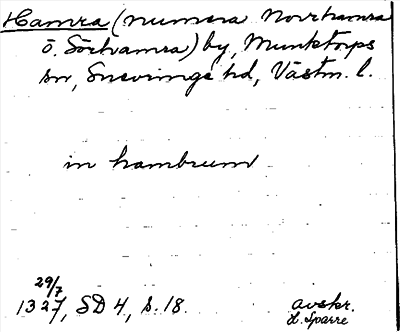 Hamra (numera Norrhamra
o. Sörhamra) by, Munktorps
sn, Snevringe hd, Västm. l.
in hambrum
29/7
1327, SD 4, s. 18.
avskr.
H. Sparre